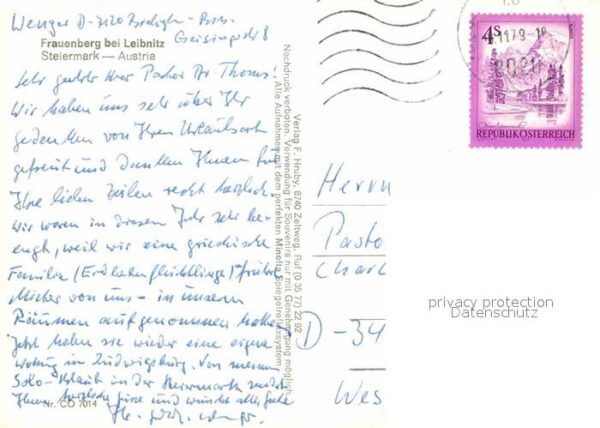 Wenger D-7120 Bietigh.-Biss.
Geisingerstr 8
Frauenberg bei Leibnitz
Steiermark — Austria
Sehr geehrter Herr Pastor Dr Thoms!
Wir haben uns sehr über Ihr
gedenken von Ihrem Urlaubsort
gefreut und danken Ihnen für
Ihre lieben Zeilen recht herzlich.
Wir waren in diesem Jahr sehr be-
engt, weil wir eine griechische
Familie (Erdbebenflüchtlinge) frühere
Mieter von uns - in unsern
Räumen aufgenommen haben.
Jetzt haben sie wieder eine eigene
Wohnung in Ludwigsburg. Von meinem
Solo-Urlaub in der Steiermark
Ihnen herzliche Grüße und wünscht alles Gute
Ihr
Nr. CO 7014
Verlag F. Hruby, 8740 Zeltweg, Ruf (0 35 77) 22 92
Nachdruck verboten. Verwendung für Souvenirs nur mit Genehmigung möglich.
Alle Aufnahmen mit dem perfekten Minolta Spiegelreflexsystem.
4S
REPUBLIK ÖSTERREICH
Herrn
Pasto
Charl
D-34
Wes
privacy protection
Datenschutz